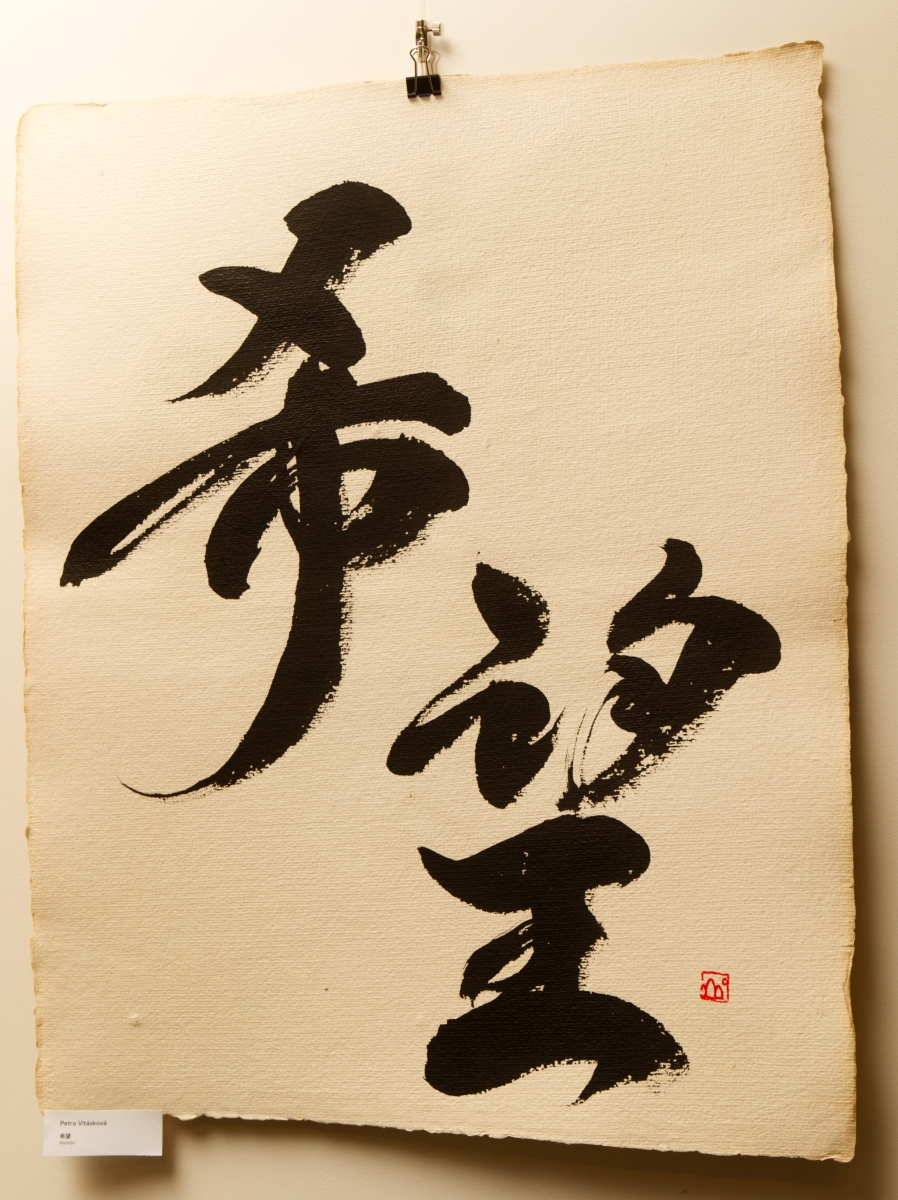 希
望
Petra Vitásková
希望
Naděje